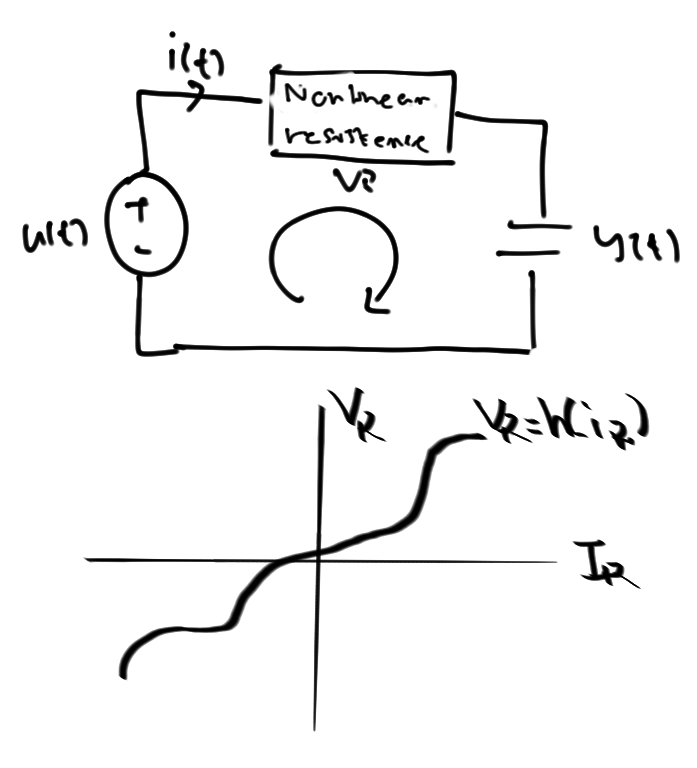 i(t)
Nonlinear
resistence
VR
+
-
u(t)
y(t)
VR
VR=h(iR)
IR